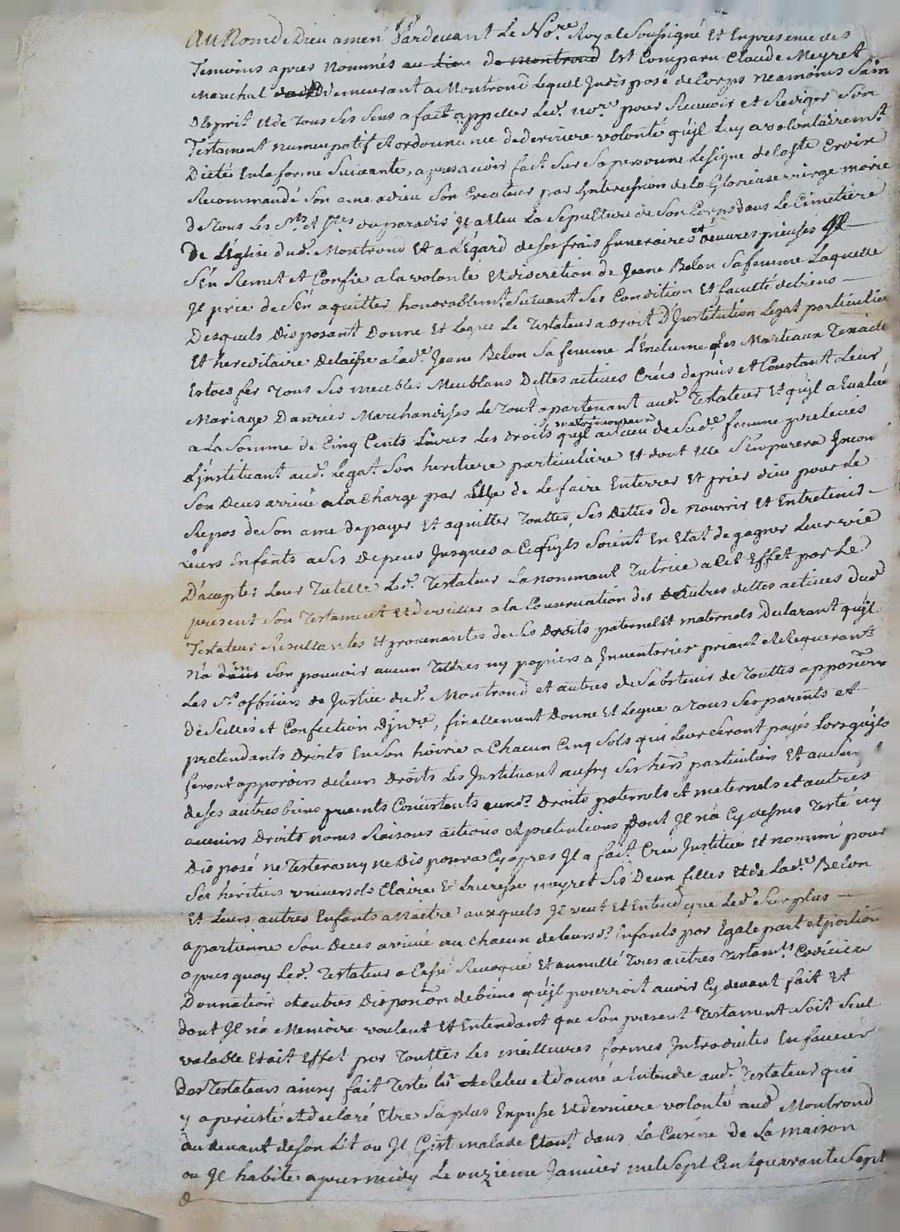 Au Nom de Dieu amen Pardevant Le Nore Royal Soussigné Et En presence des
Temoins apres Nommés au lieu de montrond Est Comparu Claude Meyret
Marchal demeurant a Montrond Lequel Indisposé de Corps neamoins Sain
desprit et de Tous ses Sens a fait appeller Led. nore pour Recevoir et Rediger Son
Testament numcupatif et ordonnance de derniere volonté qu'jl Luy a volontairemt
Dictés En la forme Suivante, apres avoir fait Sur Sa personne Le signe de la ste Croix
Recommandé Son ame a dieu Son Createur par Lintercession de la Glorieuse vierge marie
de Tous Les Sts et Stes du paradis Jl a Eleu La Sepulture de Son Corps dans Le Cimetière
De L'église dud. Montrond Et a L'Egard de Ses frais funeraires et oeuvres pieuses Jl
S'En Remet et Confie a la volonté et discretion de Jeane Belon Sa femme Laquelle
Jl prie de S'En aquitter honorablemt Suivant Ses Condition Et faculté de biens
Desquels Disposant Donne Et Legue Le Testateur a Droit D'Jnstitution Legat particulier
Et hereditaire Delaisse a lad. Jeane Belon Sa femme L'Enclume Les Marteaux Tenaille
Estocs fer Tous Ses meubles Meublans Dettes actives Créés depuis et Constant Leur
Mariage Danrées Marchandises Le Tout apartenant aud. Testateur Et qu'jl a Evalué
a La Somme de Cinq Cents Livres Les droits matrimoniaux qu'jl a de Sad. femme prelevés
L'jnstituant aud. Legat Son heritiere particulière Et dont Elle S'Emparera Jncon
Son Deces arrivé a la Charge par Elle de Le faire Enterrer Et prier dieu pour Le
Repos de Son ame de payer Et aquitter Touttes Ses Dettes de nourrir Et Entretenir
Leurs Enfants a Ses Depens Jusques a Ce qu'jls Soient En Etat de gagner Leur vie
D'accepter Leur Tutelle Led. Testateur La nommant Tutrice a Cet Effet par Le
present Son Testament Et de veiller a la Conservation des autres dettes actives dud.
Testateur Resultantes Et provenantes de Ses Droits paternel et maternels Declarant qu'jl
N'a dans Son pouvoir aucun Titres ny papiers a Jnventorier priant Et Requerant
Les Srs officiers de Justice dud. Montrond et autres de S'abstenir de Touttes apposition
De Scellés et Confection D'jnre, finallement Donne Et Legue a Tous Ses parents et
pretendants Droits En Son hoirie a Chacun Cinq Sols qui Leur Seront payés Lorsqu'jls
feront de Leurs Droits Les Jnstituant aussy Ses hers particuliers Et au Surplus
de Ses autres biens presents Consistants auxd. Droits paternels et maternels et autres
avenirs Droits noms Raisons actions Et pretentions dont Jl n'a Cy dessus Testé ny
Disposé ne Testera ny ne Disposera Cy apres Jl a fait Créé Jnstitué Et nommé pour
Ses heritiers universels Claire Et meyret Ses Deux filles Et de Lade Belon
Et Leurs autres Enfants a Naitre auxquels Jl veut Et Entend que Led. Surplus
apartienne Son Deces arrivé au chacun de Leursd. Enfants par Egale part et portion
apres quoy Led. Testateur a Cassé Revoqué Et annullé Tous autres Testamts Codicile
Donnation et autres Disposion de biens qu'jl pourroit avoir Cy devant fait Et
dont Jl n'a Memoire voulant Et Entendant que Son present Testament Soit Seul
valable Et ait Effet par Touttes Les meilleures formes Jntroduites En faveur
Des Testateurs ainsy fait Testé Lu Releleu et donné a Entendre aud. Testateur qui
y a persisté Et declaré Etre Sa plus Expresse Et derniere volonté aud Montrond
au devant de Son Lit ou Jl Git malade Etant dans La Cuisine de La maison
ou Jl habite apres midy Le onzieme Janvier mil Sept Cent quarante Sept